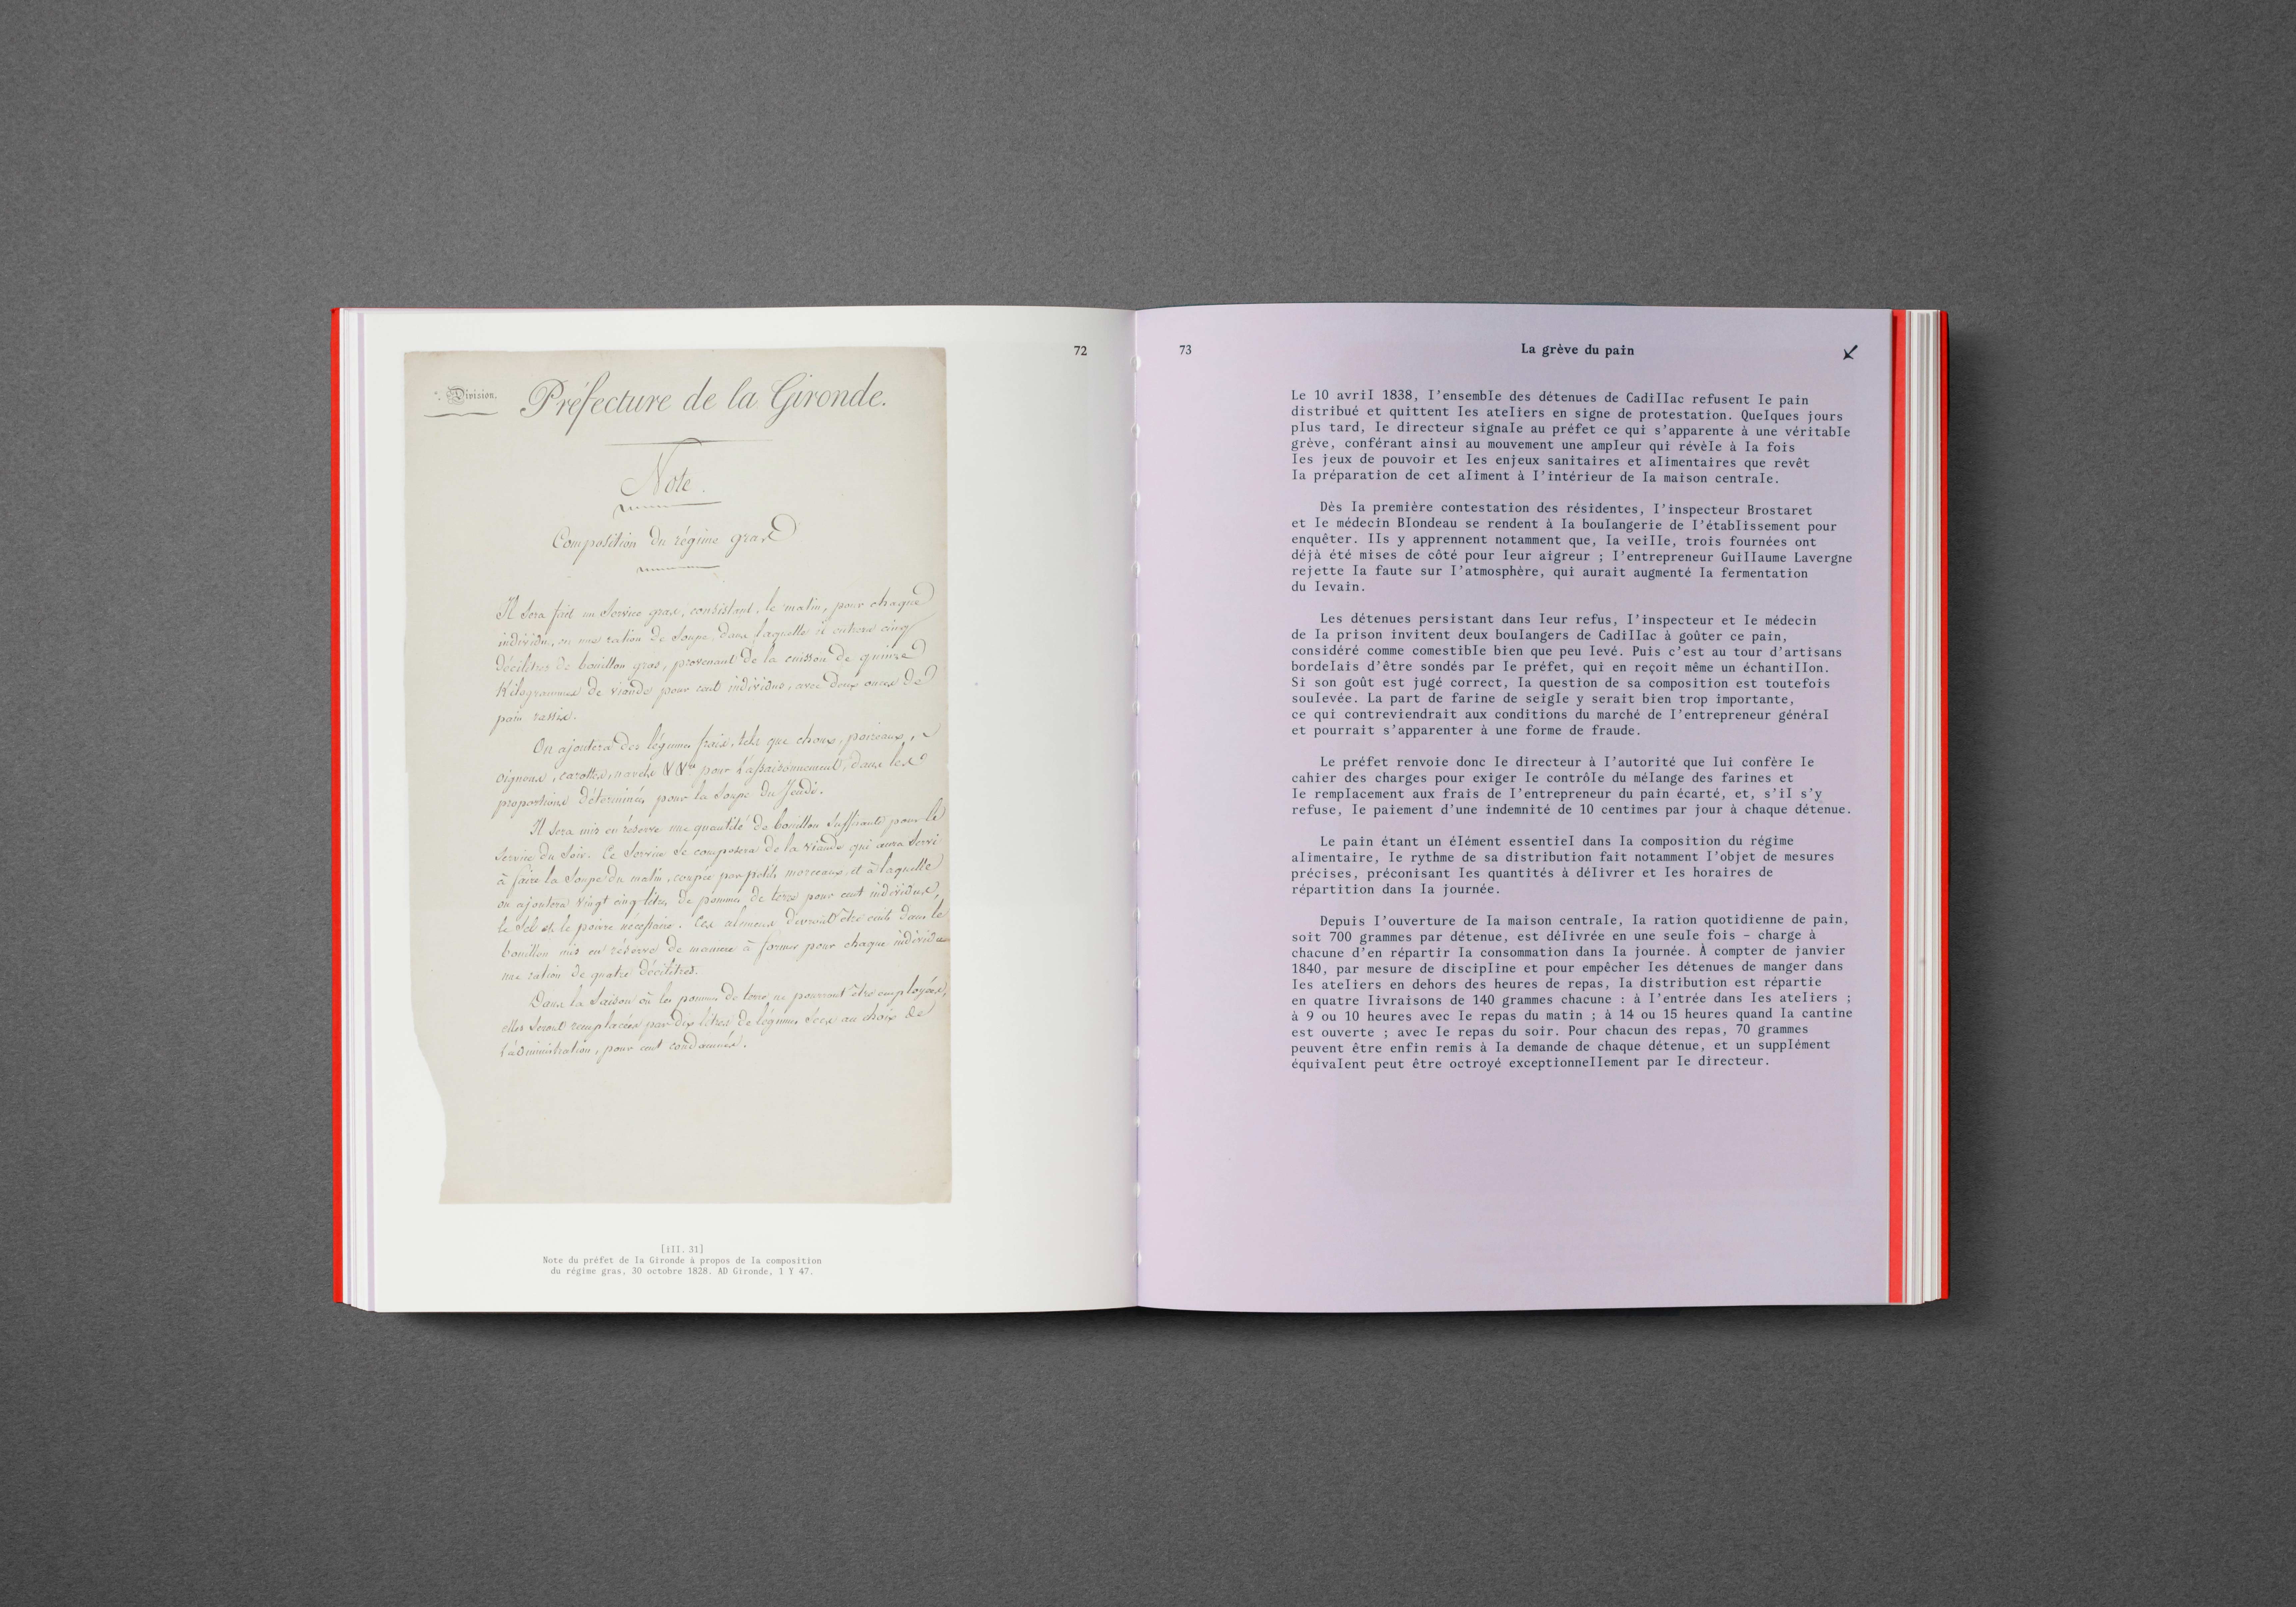 72
Division.
Préfecture de la Gironde.
Note.
Composition du régime gras
Il sera fait un Service gras, consistant, le matin, pour chaque
individu, en une ration de Soupe, dans laquelle il entrera cinq
Décilitres de bouillon gras, provenant de la cuisson de quinze
Kilogrammes de viande pour cent individus, avec deux onces de
pain rassis.
On ajoutera des légumes frais, tels que choux, poireaux,
oignons, carottes, navets pour l'assaisonnement, dans les
proportions déterminées pour la Soupe du Jeudi.
Il sera mis en réserve une quantité de bouillon suffisante pour le
Service du Soir. Ce Service se composera de la viande qui aura servi
à faire la Soupe du matin, coupée par petits morceaux, et à laquelle
on ajoutera vingt cinq litres de pommes de terre pour cent individus,
le Sel et le poivre nécessaire. Ces alimens devront être cuits dans le
bouillon mis en réserve de manière à former pour chaque individu
une ration de quatre Décilitres.
Dans la Saison où les pommes de terre ne pourront être employées,
elles seront remplacées par dix litres de légumes Secs au choix de
l'administration, pour cent condamnés.
[ill. 31]
Note du préfet de la Gironde à propos de la composition
du régime gras, 30 octobre 1828. AD Gironde, 1 Y 47.
73
La grève du pain
↙
Le 10 avril 1838, l'ensemble des détenues de Cadillac refusent le pain
distribué et quittent les ateliers en signe de protestation. Quelques jours
plus tard, le directeur signale au préfet ce qui s'apparente à une véritable
grève, conférant ainsi au mouvement une ampleur qui révèle à la fois
les jeux de pouvoir et les enjeux sanitaires et alimentaires que revêt
la préparation de cet aliment à l'intérieur de la maison centrale.
Dès la première contestation des résidentes, l'inspecteur Brostaret
et le médecin Blondeau se rendent à la boulangerie de l'établissement pour
enquêter. Ils y apprennent notamment que, la veille, trois fournées ont
déjà été mises de côté pour leur aigreur ; l'entrepreneur Guillaume Lavergne
rejette la faute sur l'atmosphère, qui aurait augmenté la fermentation
du levain.
Les détenues persistant dans leur refus, l'inspecteur et le médecin
de la prison invitent deux boulangers de Cadillac à goûter ce pain,
considéré comme comestible bien que peu levé. Puis c'est au tour d'artisans
bordelais d'être sondés par le préfet, qui en reçoit même un échantillon.
Si son goût est jugé correct, la question de sa composition est toutefois
soulevée. La part de farine de seigle y serait bien trop importante,
ce qui contreviendrait aux conditions du marché de l'entrepreneur général
et pourrait s'apparenter à une forme de fraude.
Le préfet renvoie donc le directeur à l'autorité que lui confère le
cahier des charges pour exiger le contrôle du mélange des farines et
le remplacement aux frais de l'entrepreneur du pain écarté, et, s'il s'y
refuse, le paiement d'une indemnité de 10 centimes par jour à chaque détenue.
Le pain étant un élément essentiel dans la composition du régime
alimentaire, le rythme de sa distribution fait notamment l'objet de mesures
précises, préconisant les quantités à délivrer et les horaires de
répartition dans la journée.
Depuis l'ouverture de la maison centrale, la ration quotidienne de pain,
soit 700 grammes par détenue, est délivrée en une seule fois – charge à
chacune d'en répartir la consommation dans la journée. À compter de janvier
1840, par mesure de discipline et pour empêcher les détenues de manger dans
les ateliers en dehors des heures de repas, la distribution est répartie
en quatre livraisons de 140 grammes chacune : à l'entrée dans les ateliers ;
à 9 ou 10 heures avec le repas du matin ; à 14 ou 15 heures quand la cantine
est ouverte ; avec le repas du soir. Pour chacun des repas, 70 grammes
peuvent être enfin remis à la demande de chaque détenue, et un supplément
équivalent peut être octroyé exceptionnellement par le directeur.